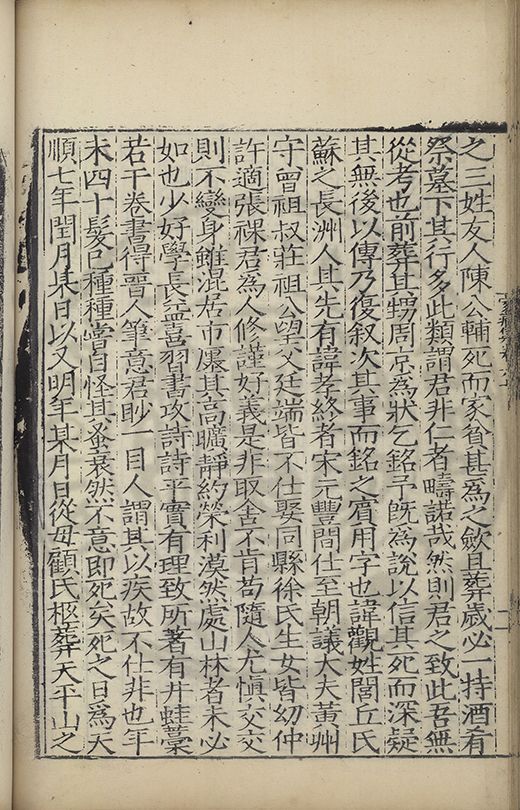 之三姓友人陳公輔死而家貧甚爲之歛且葬歲必一持酒肴
祭墓下其行多此類謂君非仁者疇諾哉然則君之致此吾無
從考也前葬其甥周京爲狀乞銘予旣爲說以信其死而深疑
其無後以傳乃復叙次其事而銘之賔用字也諱觀姓閭丘氏
蘇之長洲人其先有諱孝終者宋元豐間仕至朝議大夫黃州
守曾祖叔莊祖公望父廷端皆不仕娶同縣徐氏生女皆幼仲
許適張祼君爲人修謹好義是非取舍不肯苟隨人尤慎交交
則不變身雖混居市廛其高曠靜約榮利漠然處山林者未必
如也少好學長益喜習書攻詩詩平實有理致所著有井蛙藁
若干卷書得晉人筆意君眇一目人謂其以疾故不仕非也年
未四十髮已種種嘗自怪其蚤衰然不意即死矣死之日爲天
順七年閏月某日以又明年某月日從母顧氏柩葬天平山之